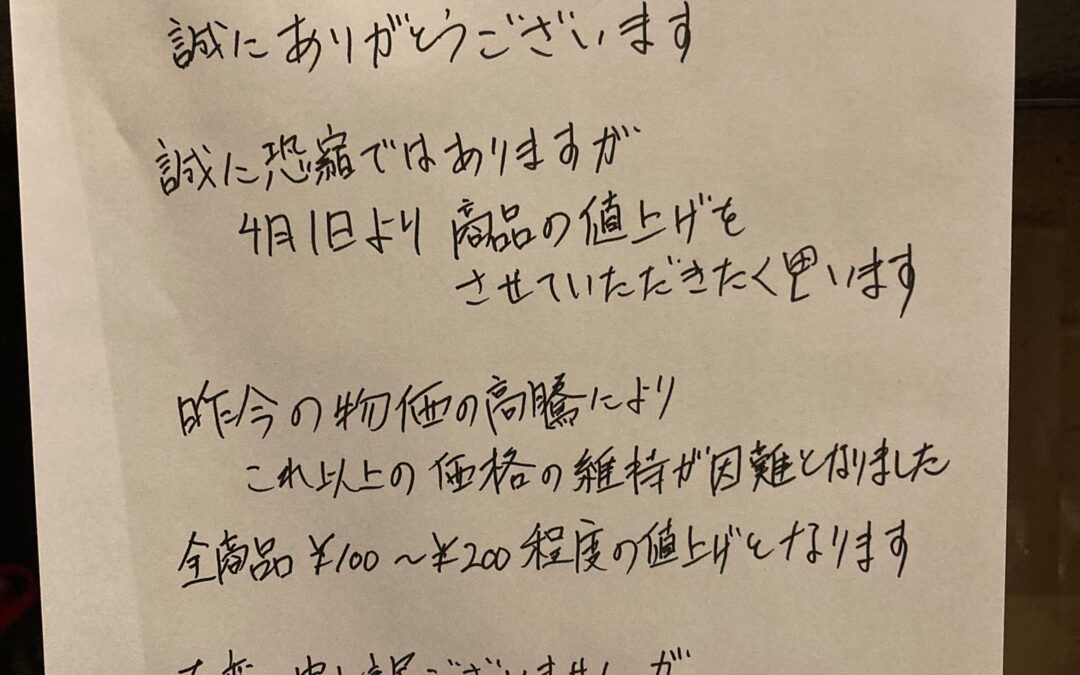 誠にありがとうございます
誠に恐縮ではありますが
4月1日より商品の値上げを
させていただきたく思います
昨今の物価の高騰により
これ以上の価格の維持が困難となりました
全商品¥100～¥200程度の値上げとなります
大変申し訳ございませんが